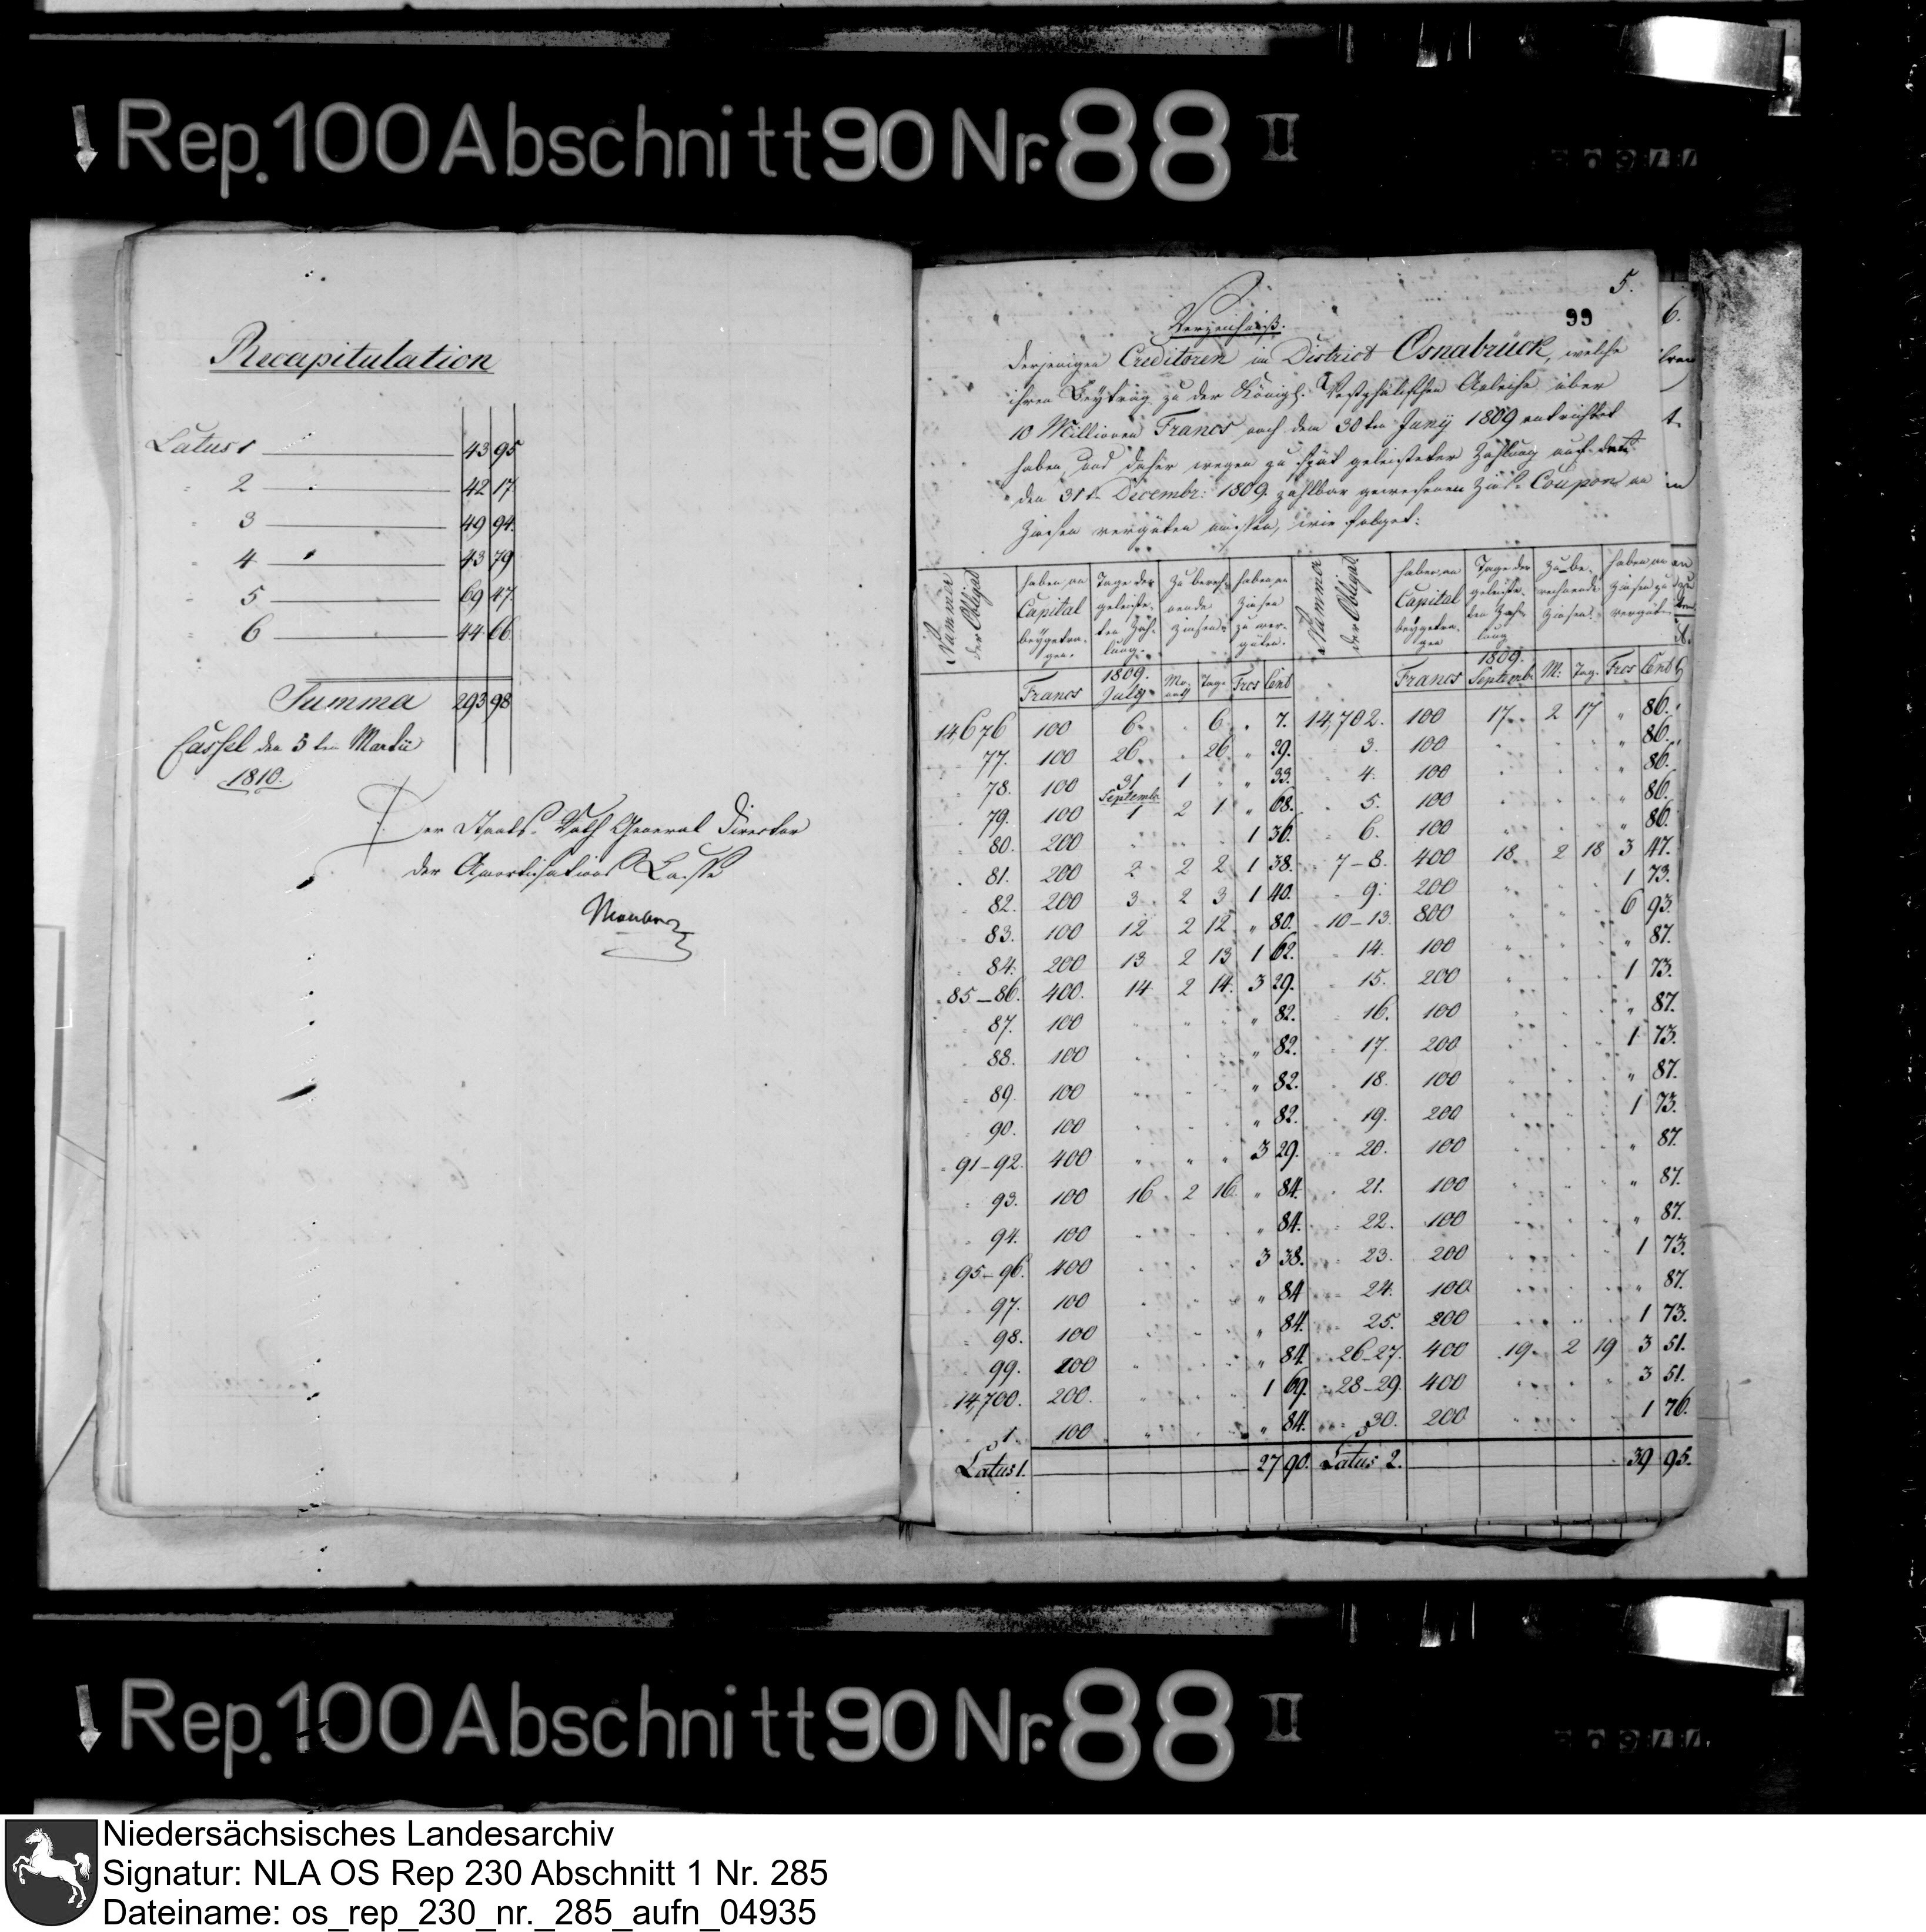 Rep. 100 Abschnitt 90 Nr. 88 II
Recapitulation
Latus 1 43 95
" 2 42 17.
" 3 49 94.
" 4 43 79
" 5 69 47.
" 6 44 66
Summa 293 98
Cassel den 5ten Martii
1810.
Der Staats-Rath General Director
der Amortisations Casse
5.
99
6.
Verzeichniß.
derjenigen Creditoren im District Osnabrück, welche
ihren Beytrag zu der Königl. Westphälischen Anleihe über
10 Millionen Francs nach dem 30ten Juny 1809 entrichtet
haben, und daher wegen zu spät geleisteter Zahlung auf den
den 31ten Decembr: 1809 zahlbar gewesenen Zins-Coupon an
Zinsen vergüten müssen, wie folget:
Nummer der Obligat haben an Capital beygetragen. Tage der geleisteten Zahlung. Zu berechnende Zinsen haben an Zinsen zu vergüten. Nummer der Obligat haben an Capital beygetragen Tage der geleisteten Zahlung Zu berechnende Zinsen. haben an Zinsen zu vergüten
Francs 1809. July Monath Tage Frcs Cent Francs 1809. Septemb. M: Tag. Frcs Cent
14,676 100 6. . 6. . 7. 14,702. 100 17. 2 17 " 86.
77. 100 26. . 26. " 29. 3. 100 " 86.
78. 100 31 1 " " 33. 4. 100 " 86.
Septemb.
79. 100 1 2 1 " 68. 5. 100 " 86.
80. 200 1 36. 6. 100 " 86.
81. 200 2 2 2 1 38. 7-8. 400 18. 2 18 3 47.
82. 200 3 2 3 1 40. 9. 200 1 73.
83. 100 12 2 12 " 80. 10-13. 800 6 93.
84. 200 13 2 13 1 62. 14. 100 " 87.
85-86. 400. 14 2 14. 3 29. 15. 200 1 73.
87. 100 " 82. 16. 100 " 87.
88. 100 " 82. 17. 200 1 73.
89. 100 " 82. 18. 100 " 87.
90. 100 " 82. 19. 200 1 73.
91-92. 400 3 29. 20. 100 " 87.
93. 100 16 2 16 " 84. 21. 100 " 87.
94. 100 " 84. 22. 100 " 87.
95-96. 400 3 38. 23. 200 1 73.
97. 100 " 84 24. 100 " 87.
98. 100 " 84. 25. 200 1 73.
99. 100 " 84. 26-27. 400 19. 2 19 3 51.
14,700. 200. 1 69. 28-29. 400 3 51.
1. 100 " 84. 30. 200 1 76.
Latus 1. 27 90. Latus 2. 39 95.
Rep. 100 Abschnitt 90 Nr. 88 II
Niedersächsisches Landesarchiv
Signatur: NLA OS Rep 230 Abschnitt 1 Nr. 285
Dateiname: os_rep_230_nr._285_aufn_04935